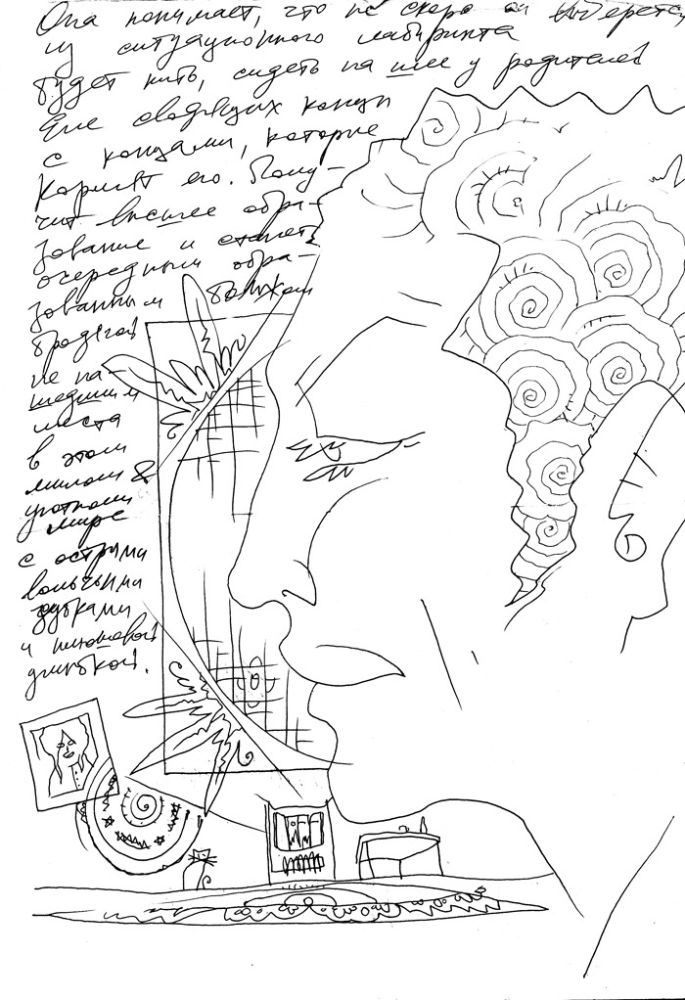 Она понимает, что не скоро он выберется
из ситуационного лабиринта
будет жить, сидеть на шее у родителей
Еле сводящих концы
с концами, которые
кормят его. Полу-
чит высшее обра-
зование и станет
очередным обра-
зованным
бродягой
не на-
шедшим
места
в этом
милом &
уютном
мире
с острыми
волчьими
зубками
и плюшевой
улыбкой.